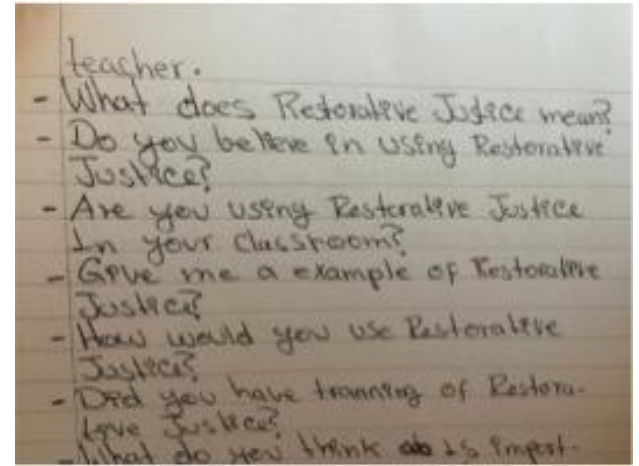 teacher.
- What does Restorative Justice mean?
- Do you believe in using Restorative
Justice?
- Are you using Restorative Justice
In your classroom?
- Give me a example of Restorative
Justice?
- How would you use Restorative
Justice?
- Did you have tranning of Restora-
tive Justice?
- What do you think is import-